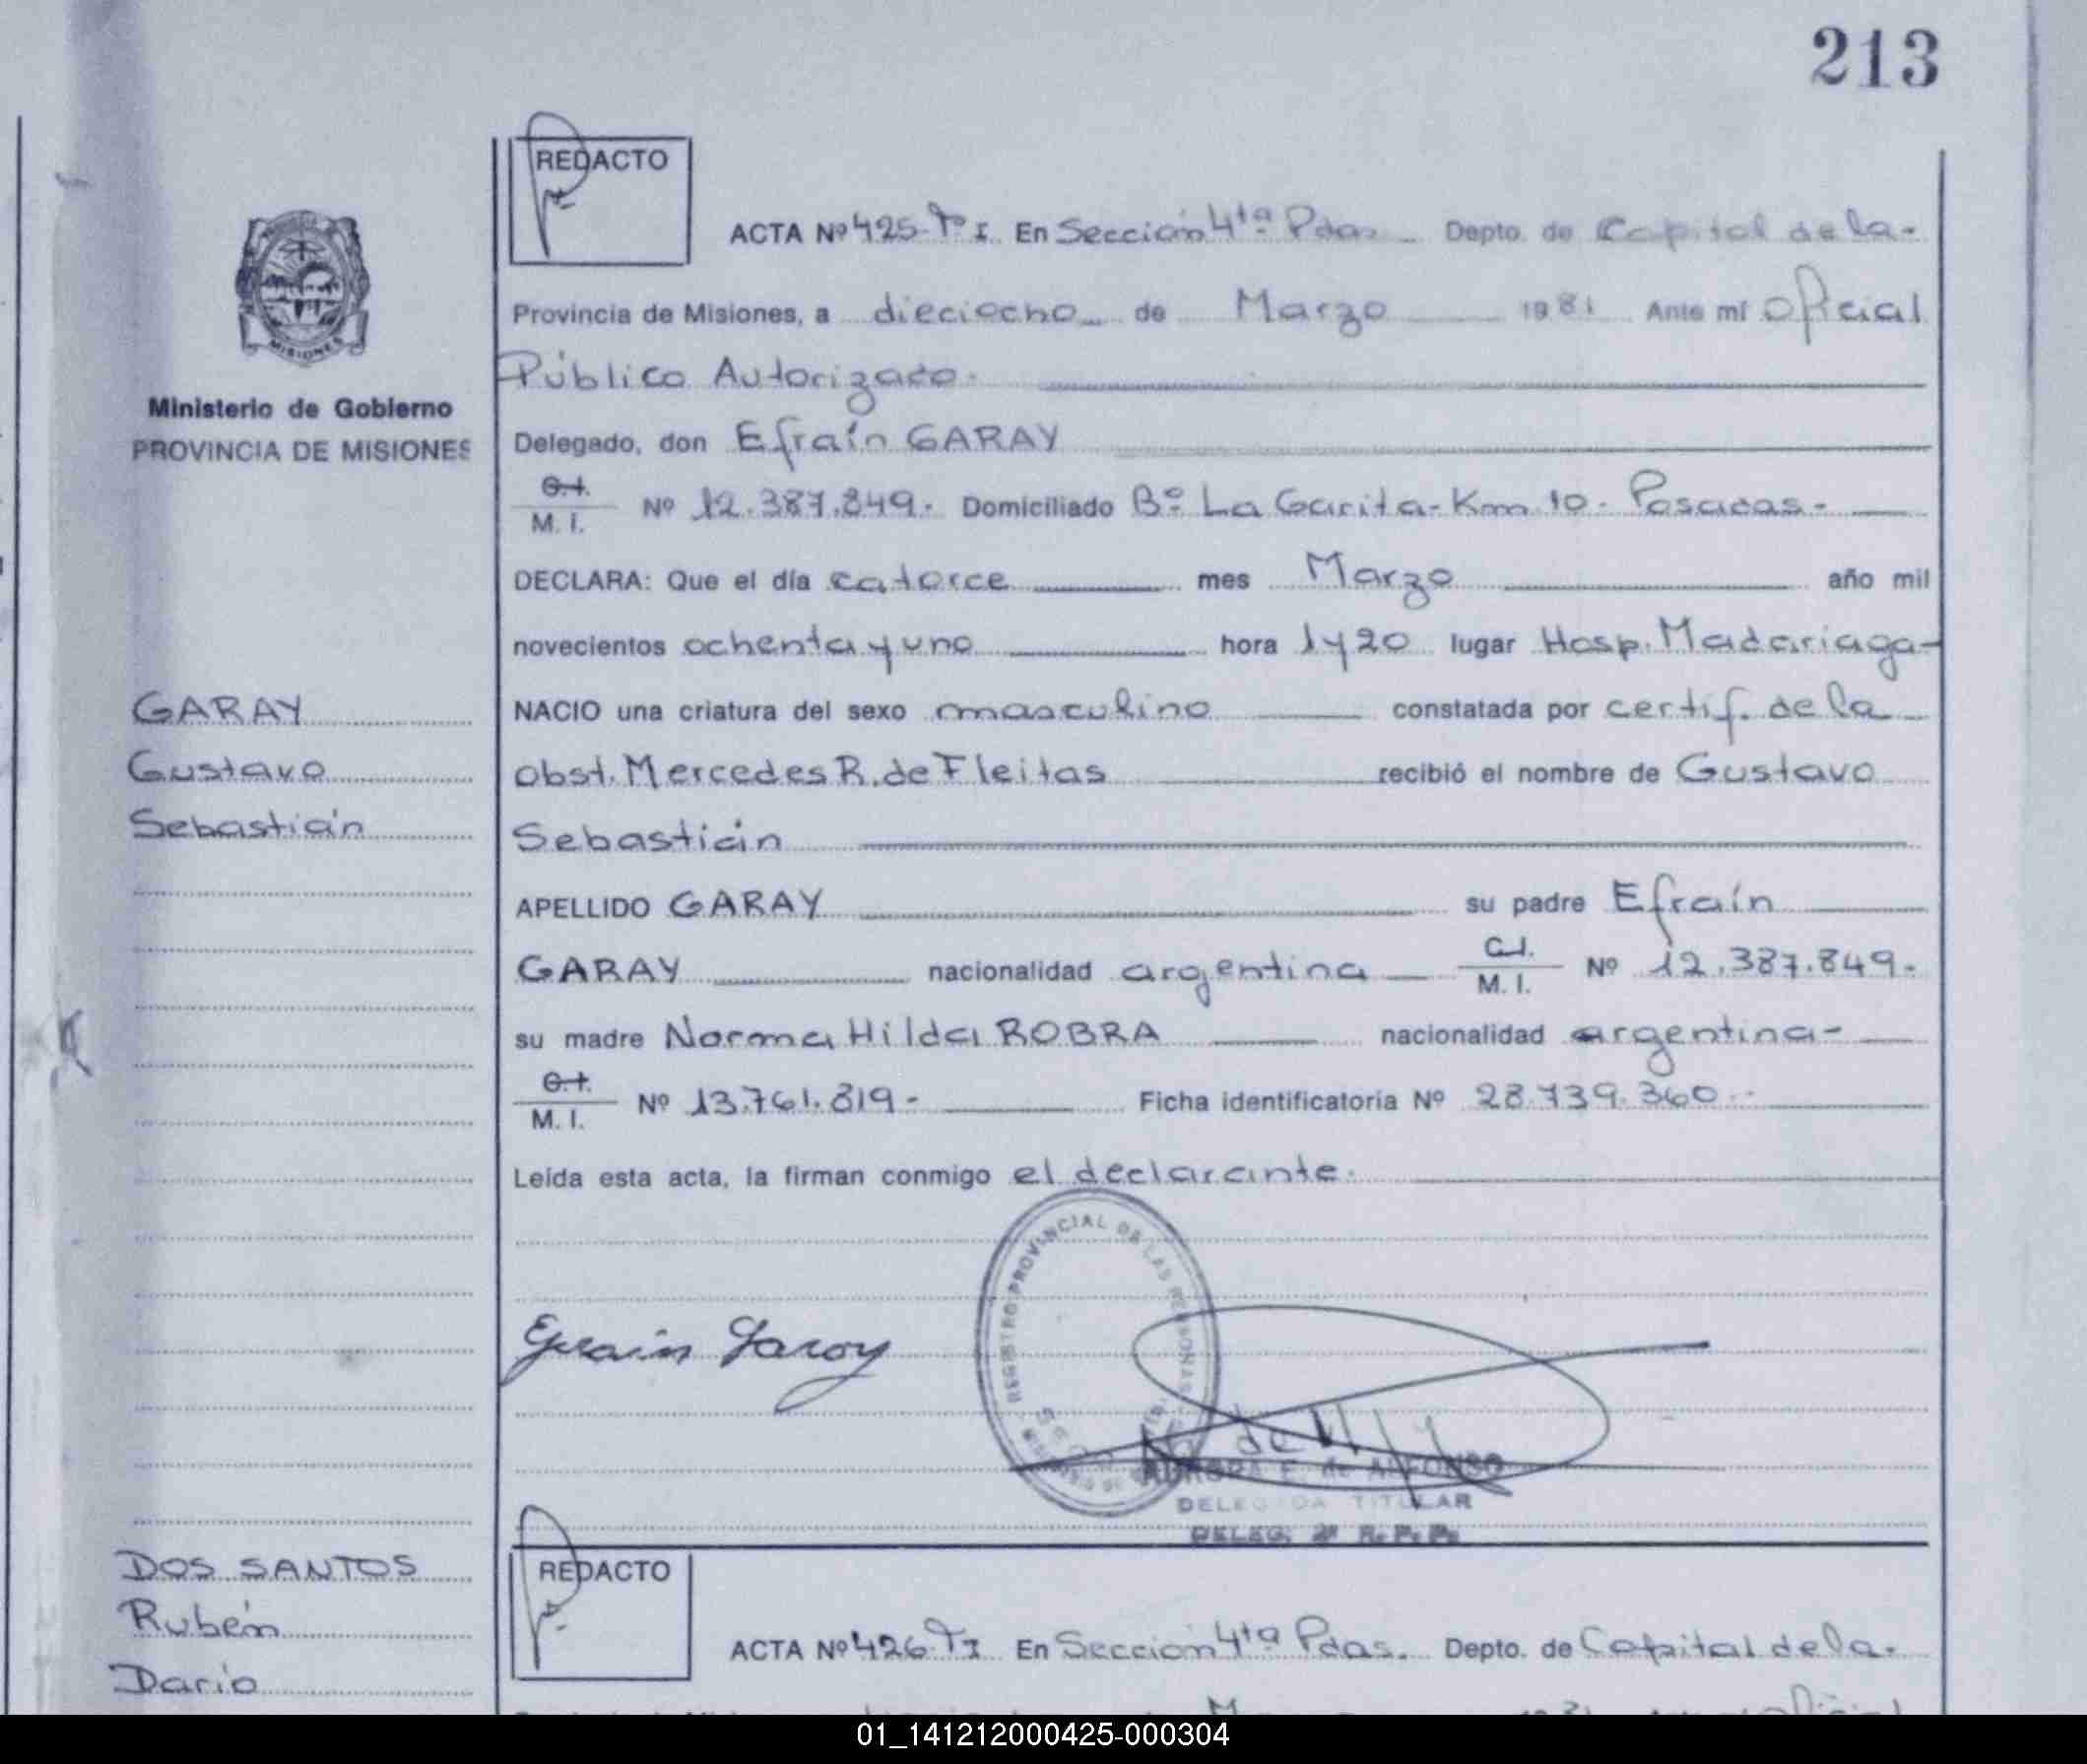 213
REDACTO
ACTA Nº 425-Tº I. En Sección 4ta Pdas. Depto. de Capital de la-
Provincia de Misiones, a dieciocho de Marzo 1981 Ante mí Oficial
Público Autorizado.
Ministerio de Gobierno
PROVINCIA DE MISIONES
Delegado, don Efraín GARAY
C.I.
M. I. Nº 12.387.849. Domiciliado Bº La Garita-Km 10- Posadas-
DECLARA: Que el día catorce mes Marzo año mil
novecientos ochenta y uno hora 1 y 20 lugar Hosp. Madariaga-
GARAY
Gustavo
Sebastián
NACIO una criatura del sexo masculino constatada por certif. de la
obst. Mercedes R. de Fleitas recibió el nombre de Gustavo
Sebastián
APELLIDO GARAY su padre Efraín
GARAY nacionalidad argentina C.I.
M. I. Nº 12.387.849-
su madre Norma Hilda ROBRA nacionalidad argentina-
C.I.
M. I. Nº 13.761.819- Ficha identificatoria Nº 28.739.360--
Leída esta acta, la firman conmigo el declarante.
REGISTRO PROVINCIAL DE LAS PERSONAS
Efraín Garay
E. de ALFONSO
DELEGADA TITULAR
DELEG. R. P. P.
DOS SANTOS
Rubén
Darío
REDACTO
ACTA Nº 426-Tº I En Sección 4ta Pdas. Depto. de Capital de la.
01_141212000425-000304